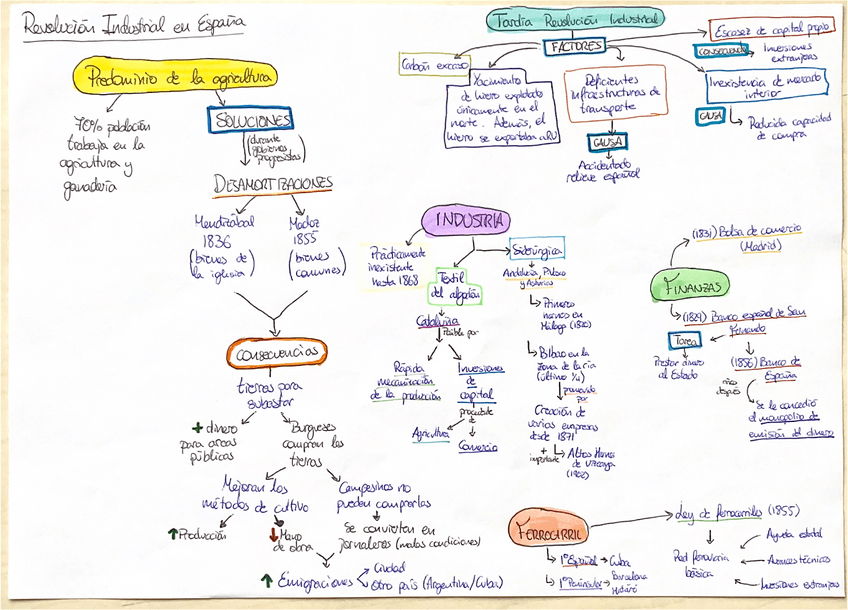 Revolución Industrial en España
Predominio de la agricultura
70% población
trabaja en la
agricultura y
ganadería
SOLUCIONES
(durante
gobiernos
progresistas)
DESAMORTIZACIONES
Mendizábal
1836
(bienes de
la iglesia)
Madoz
1855
(bienes
comunes)
CONSECUENCIAS
tierras para
subastar
+ dinero
para arcas
públicas
Burgueses
compran las
tierras
Mejoran los
métodos de cultivo
Campesinos no
pueden comprarlas
↑ Producción
↓ Mano
de obra
Se convierten en
jornaleros (malas condiciones)
↑ Emigraciones
Ciudad
Otro país (Argentina/Cuba)
Tardía Revolución Industrial
FACTORES
Carbón escaso
Yacimiento
de hierro explotado
únicamente en el
norte. Además, el
hierro se exportaba a RU
Deficientes
infraestructuras de
transporte
CAUSA
Accidentado
relieve español
Escasez de capital propio
CONSECUENCIA
Inversiones
extranjeras
Inexistencia de mercado
interior
CAUSA
Reducida capacidad
de compra
INDUSTRIA
Prácticamente
inexistente
hasta 1868
Textil
del algodón
Cataluña
Posible por
Rápida
mecanización
de la producción
Inversiones
de
capital
procedente
de
Agricultura
Comercio
Siderúrgica
Andalucía, P.Vasco
y Asturias
Primeros
hornos en
Málaga
Bilbao en la
zona de la ría
(último 1/4)
pasando
por
Creación de
varias empresas
desde 1871
+
importante
Altos Hornos
de Vizcaya
(1902)
FINANZAS
(1831) Bolsa de comercio
(Madrid)
(1829) Banco español de San
Fernando
Tarea
Prestar dinero
al Estado
(1856) Banco de
España
años
después
Se le concedió
el monopolio de
emisión del dinero
FERROCARRIL
1º Español → Cuba
1º Peninsular → Barcelona
Mataró
Ley de ferrocarriles (1855)
Red ferroviaria
básica
Ayuda estatal
Avances técnicos
Inversiones extranjeras